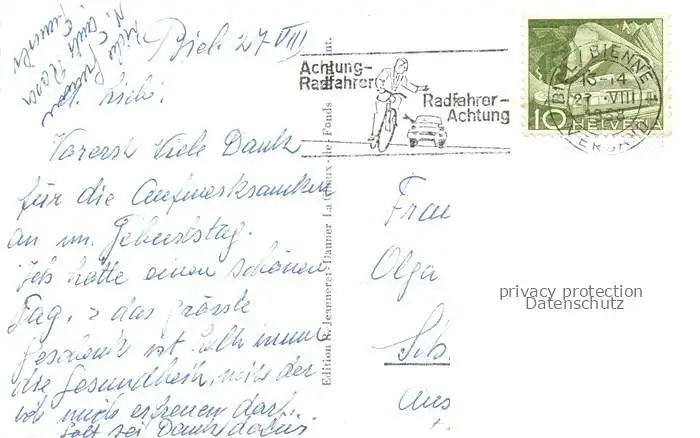 Biel. 27 VIII
M. Liebi!
Vorerst Viele Dank
für die Aufmerksamkeit
an m. Geburtstag.
Ich hatte einen schönen
Tag, & das grösste
Geschenk ist halt immer
die Gesundheit, mit der
ich mich erfreuen darf.
Gott sei Dank dafür
Achtung-
Radfahrer
Radfahrer-
Achtung
BIEL / BIENNE 1
13-14
27. VIII
VERSAND
10 HELVETIA
Edition S. Jeanneret-Danner La Chaux-de-Fonds
Frau
Olga
Sch
Aus
privacy protection
Datenschutz